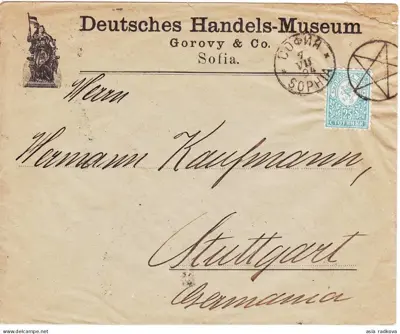 Deutsches Handels-Museum
Gorovy & Co.
Sofia.
СОФИЯ
VII
SOPHIA
25
Herrn
Hermann Kaufmann,
Stuttgart
Germania
© DELCAMPE.NET
asia radkova